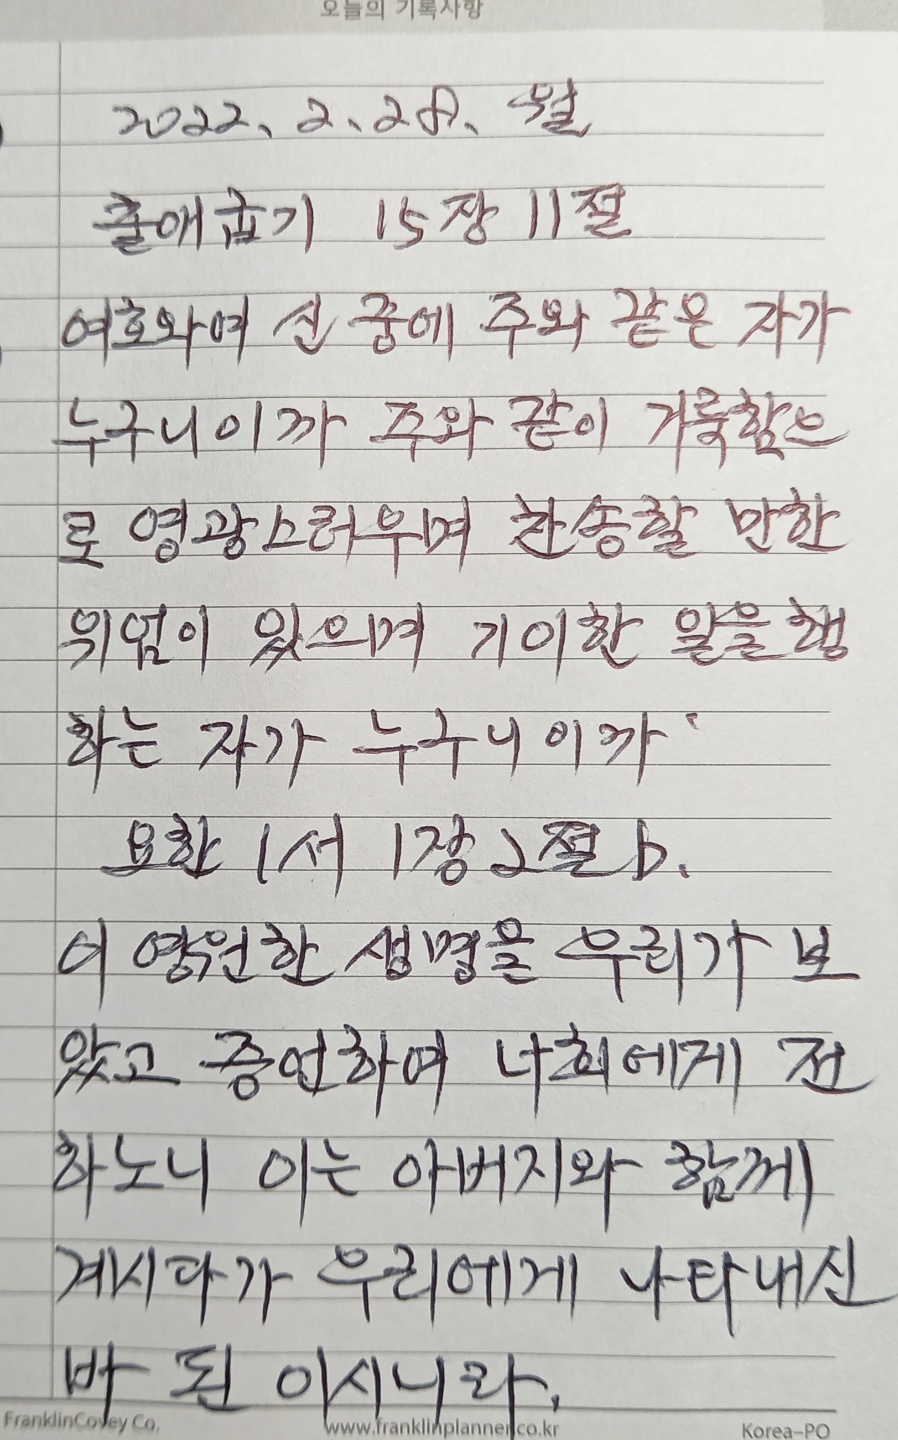 오늘의 기록사항
2022. 2. 28. 월
출애굽기 15장 11절
여호와여 신 중에 주와 같은 자가
누구니이까 주와 같이 거룩함으
로 영광스러우며 찬송할 만한
위엄이 있으며 기이한 일을 행
하는 자가 누구니이까
요한 1서 1장 2절 b.
이 영원한 생명을 우리가 보
았고 증언하여 너희에게 전
하노니 이는 아버지와 함께
계시다가 우리에게 나타내신
바 된 이시니라.
FranklinCovey Co. www.franklinplanner.co.kr Korea-PO